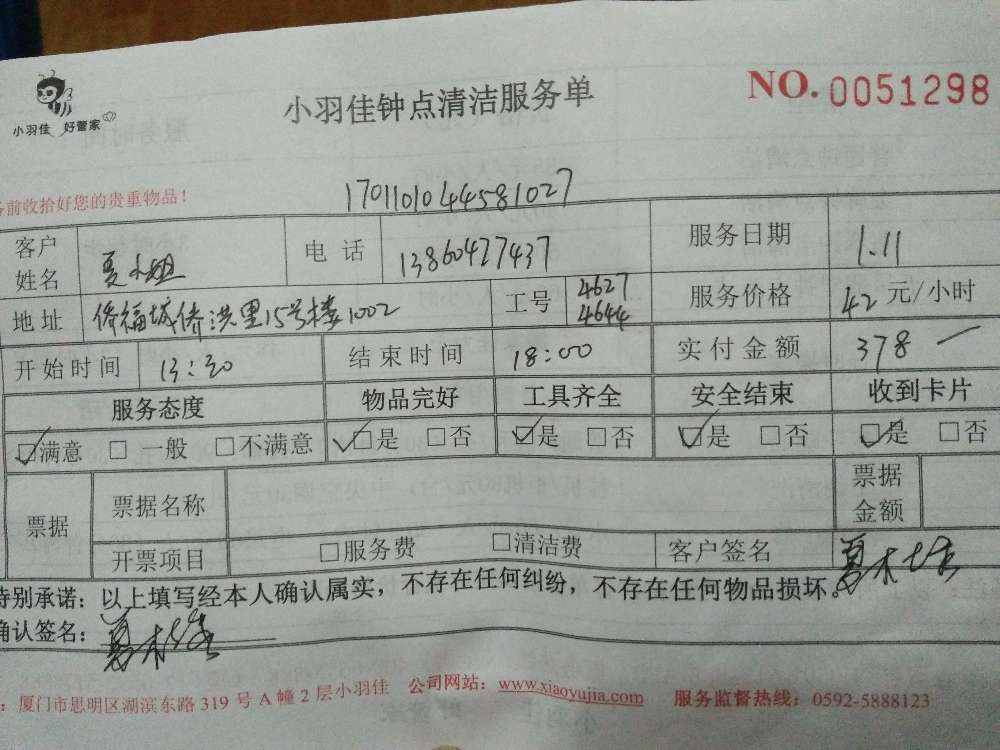 小羽佳 好管家
小羽佳钟点清洁服务单
NO. 0051298
前收拾好您的贵重物品！
1701101044581027
客户姓名 夏小姐 电话 13860427437 服务日期 1.11
地址 侨福城侨洪里15号楼1002 工号 4627 4644 服务价格 42 元/小时
开始时间 13:30 结束时间 18:00 实付金额 378
服务态度 物品完好 工具齐全 安全结束 收到卡片
☑满意 □一般 □不满意 ☑是 □否 ☑是 □否 ☑是 □否 ☑是 □否
票据 票据名称 票据金额
开票项目 □服务费 □清洁费 客户签名
特别承诺：以上填写经本人确认属实，不存在任何纠纷，不存在任何物品损坏。
确认签名：
：厦门市思明区湖滨东路 319 号 A 幢 2 层小羽佳 公司网站：www.xiaoyujia.com 服务监督热线：0592-5888123